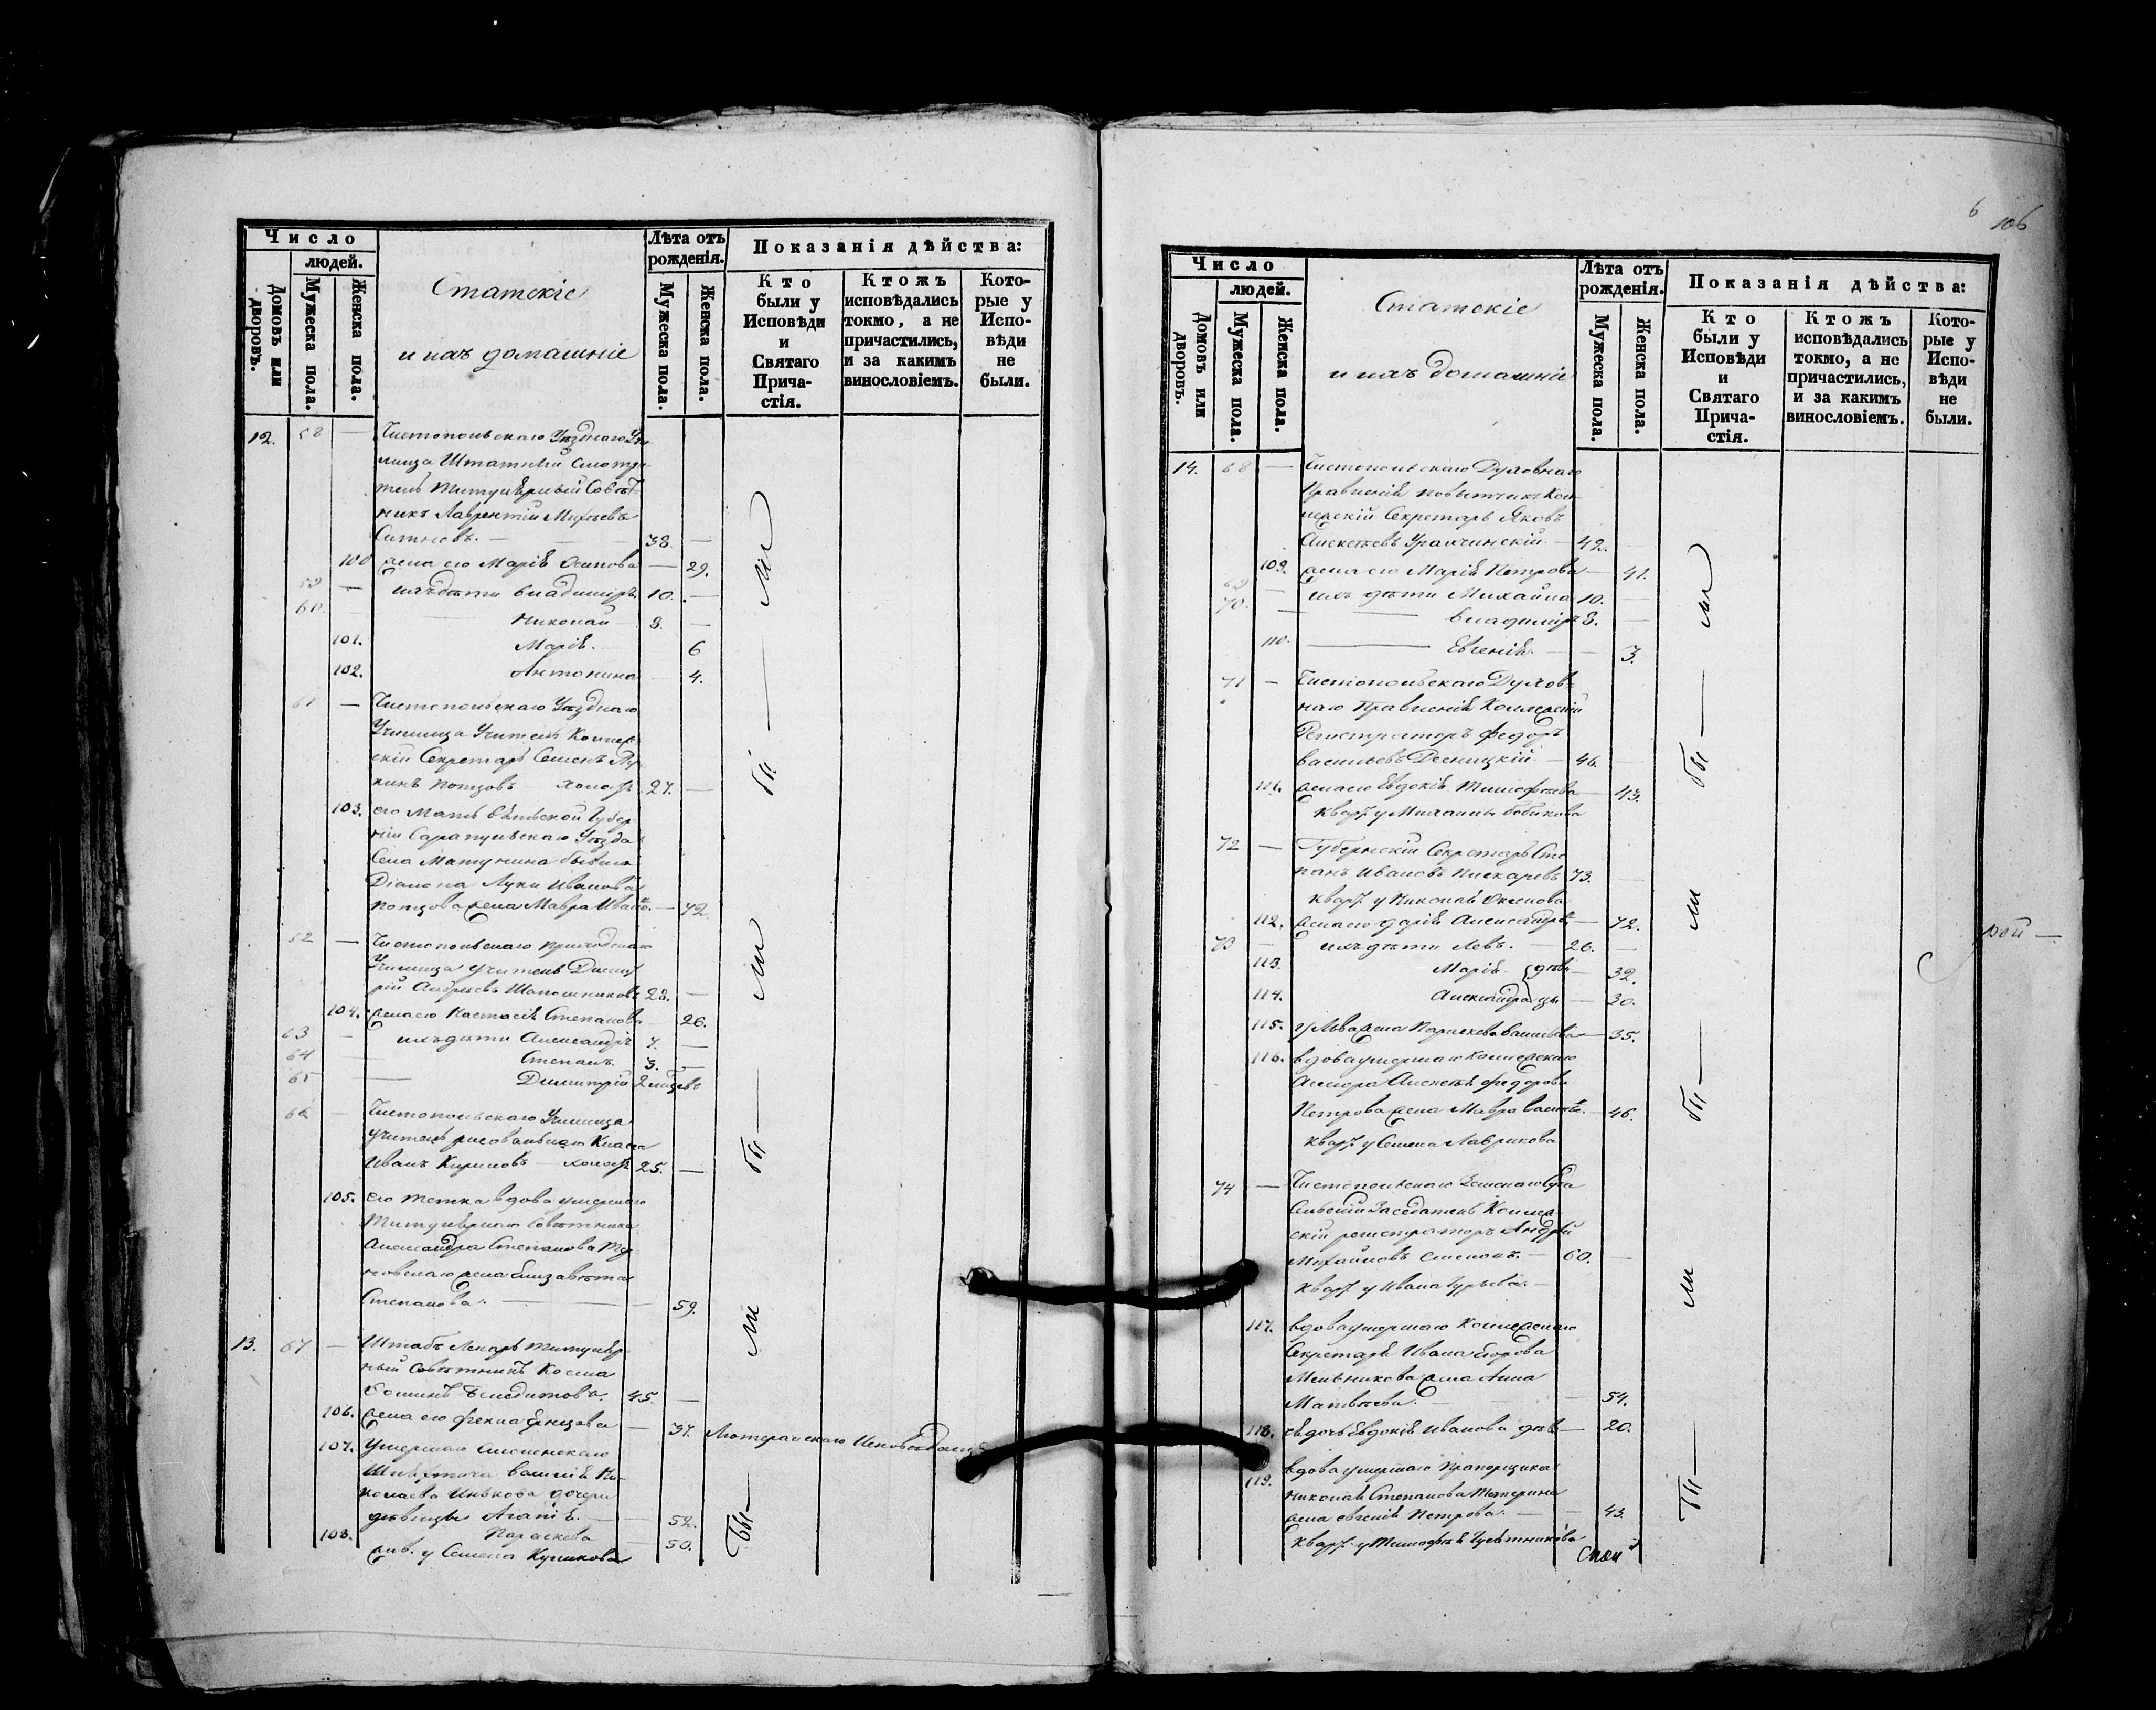 Число
людей.
Домовъ или дворовъ.
Мужеска пола.
Женска пола.
Статскіе
и ихъ домашніе
Лѣта отъ рожденія.
Мужеска пола.
Женска пола.
Показанія дѣйства:
Кто были у Исповѣди и Святаго Причастія.
Ктожъ исповѣдались токмо, а не причастились, и за какимъ винословіемъ.
Которые у Исповѣди не были.
12. 58 — Чистопольскаго Уѣзднаго Учи
лища Штатный Смотри
тель Титулярный Совѣт
никъ Лаврентій Матѣевъ
Ситневъ. — 38. —
100 жена его Марія Осипова — 29.
59 — ихъ дѣти Владиміръ 10. —
60. — Николай 8. —
101. Марія. 6
102. Антонина 4.
61 — Чистопольскаго Уѣзднаго
Училища Учитель Коллеж
скій Секретарь Семенъ Лу
кинъ Попцовъ холостъ 27. —
103. его Мать Вятской Губер
ніи Сарапульскаго Уѣзда
Села Матунина бывшаго
Діакона Луки Иванова
Попцова жена Мавра Иван. — 72
62 — Чистопольскаго приходскаго
Училища учитель Димит
рій Андреевъ Шапошниковъ 28. —
104. жена его Настасія Степанова 26.
63 — ихъ дѣти Александръ 7. —
64 — Степанъ. 3. —
65 — Димитрій 2 мѣсяцевъ
66 — Чистопольскаго Училища
учитель рисовальнаго Класса
Иванъ Кириловъ — холостъ 25. —
105. его тетка вдова умершаго
Титулярнаго Совѣтника
Александра Степанова
жена Елизавета
Степанова. — 59.
13. 67 — Штабъ Лекарь Титуляр
ный Совѣтникъ Косма
45. —
106. жена его Фекла — 37. Лютеранскаго Исповѣданія
107. Умершаго
Василія Ни
колаева Инькова дочери
дѣвицы Агапія. — 52.
108. Параскева — 50.
жив. у Семена Куликова
бы — ли
бы — ли
бы — ли
бы —
6 106
Число
людей.
Домовъ или дворовъ.
Мужеска пола.
Женска пола.
Статскіе
и ихъ домашніе
Лѣта отъ рожденія.
Мужеска пола.
Женска пола.
Показанія дѣйства:
Кто были у Исповѣди и Святаго Причастія.
Ктожъ исповѣдались токмо, а не причастились, и за какимъ винословіемъ.
Которые у Исповѣди не были.
14. 68 — Чистопольскаго Духовнаго
Правленія повытчикъ Кол
лежскій Секретарь Яковъ
Алексѣевъ — 42. —
109. жена его Марія Петрова — 41.
69 — ихъ дѣти Михаилъ 10. —
70. — Владиміръ 8. —
110. — Евгенія. — 3.
71 — Чистопольскаго Духов
наго Правленія Коллежскій
Регистраторъ Федоръ
Васильевъ Десницкій. — 46. —
111. жена его Евдокія Тимофеева — 43.
кварт. у Михаила Бобикова
72 — Губернскій Секретарь Сте
панъ Ивановъ Пискаревъ 73. —
кварт. у Николая
112. жена его Дарія Александр. — 72.
73 — ихъ дѣти Левъ. — 26. —
113. Марія дѣви 32.
114. Александра цы — 30.
115. у Льва жена Параскева Васильева — 35.
116. вдова умершаго Коллежскаго
Ассесора Алексѣя Федорова
Петрова жена Мавра Василь. — 46.
кварт. у Семена Лаврикова
74 — Чистопольскаго Земскаго Суда
Сельскій Засѣдатель Коллеж
скій регистраторъ Андрей
Михайловъ — 60. —
кварт. у Ивана Гурьева. —
117. вдова умершаго Коллежскаго
Секретаря Ивана Егорова
Мельникова жена Анна
Матвѣева. — 54.
118. ея дочь Евдокія Иванова дѣв. — 20.
119. вдова умершаго Прапорщика
Николая Степанова
жена Евгенія Петрова. — 43.
кварт. у Тимофея
бы — ли
бы — ли
бы — ли
бы —
рей —